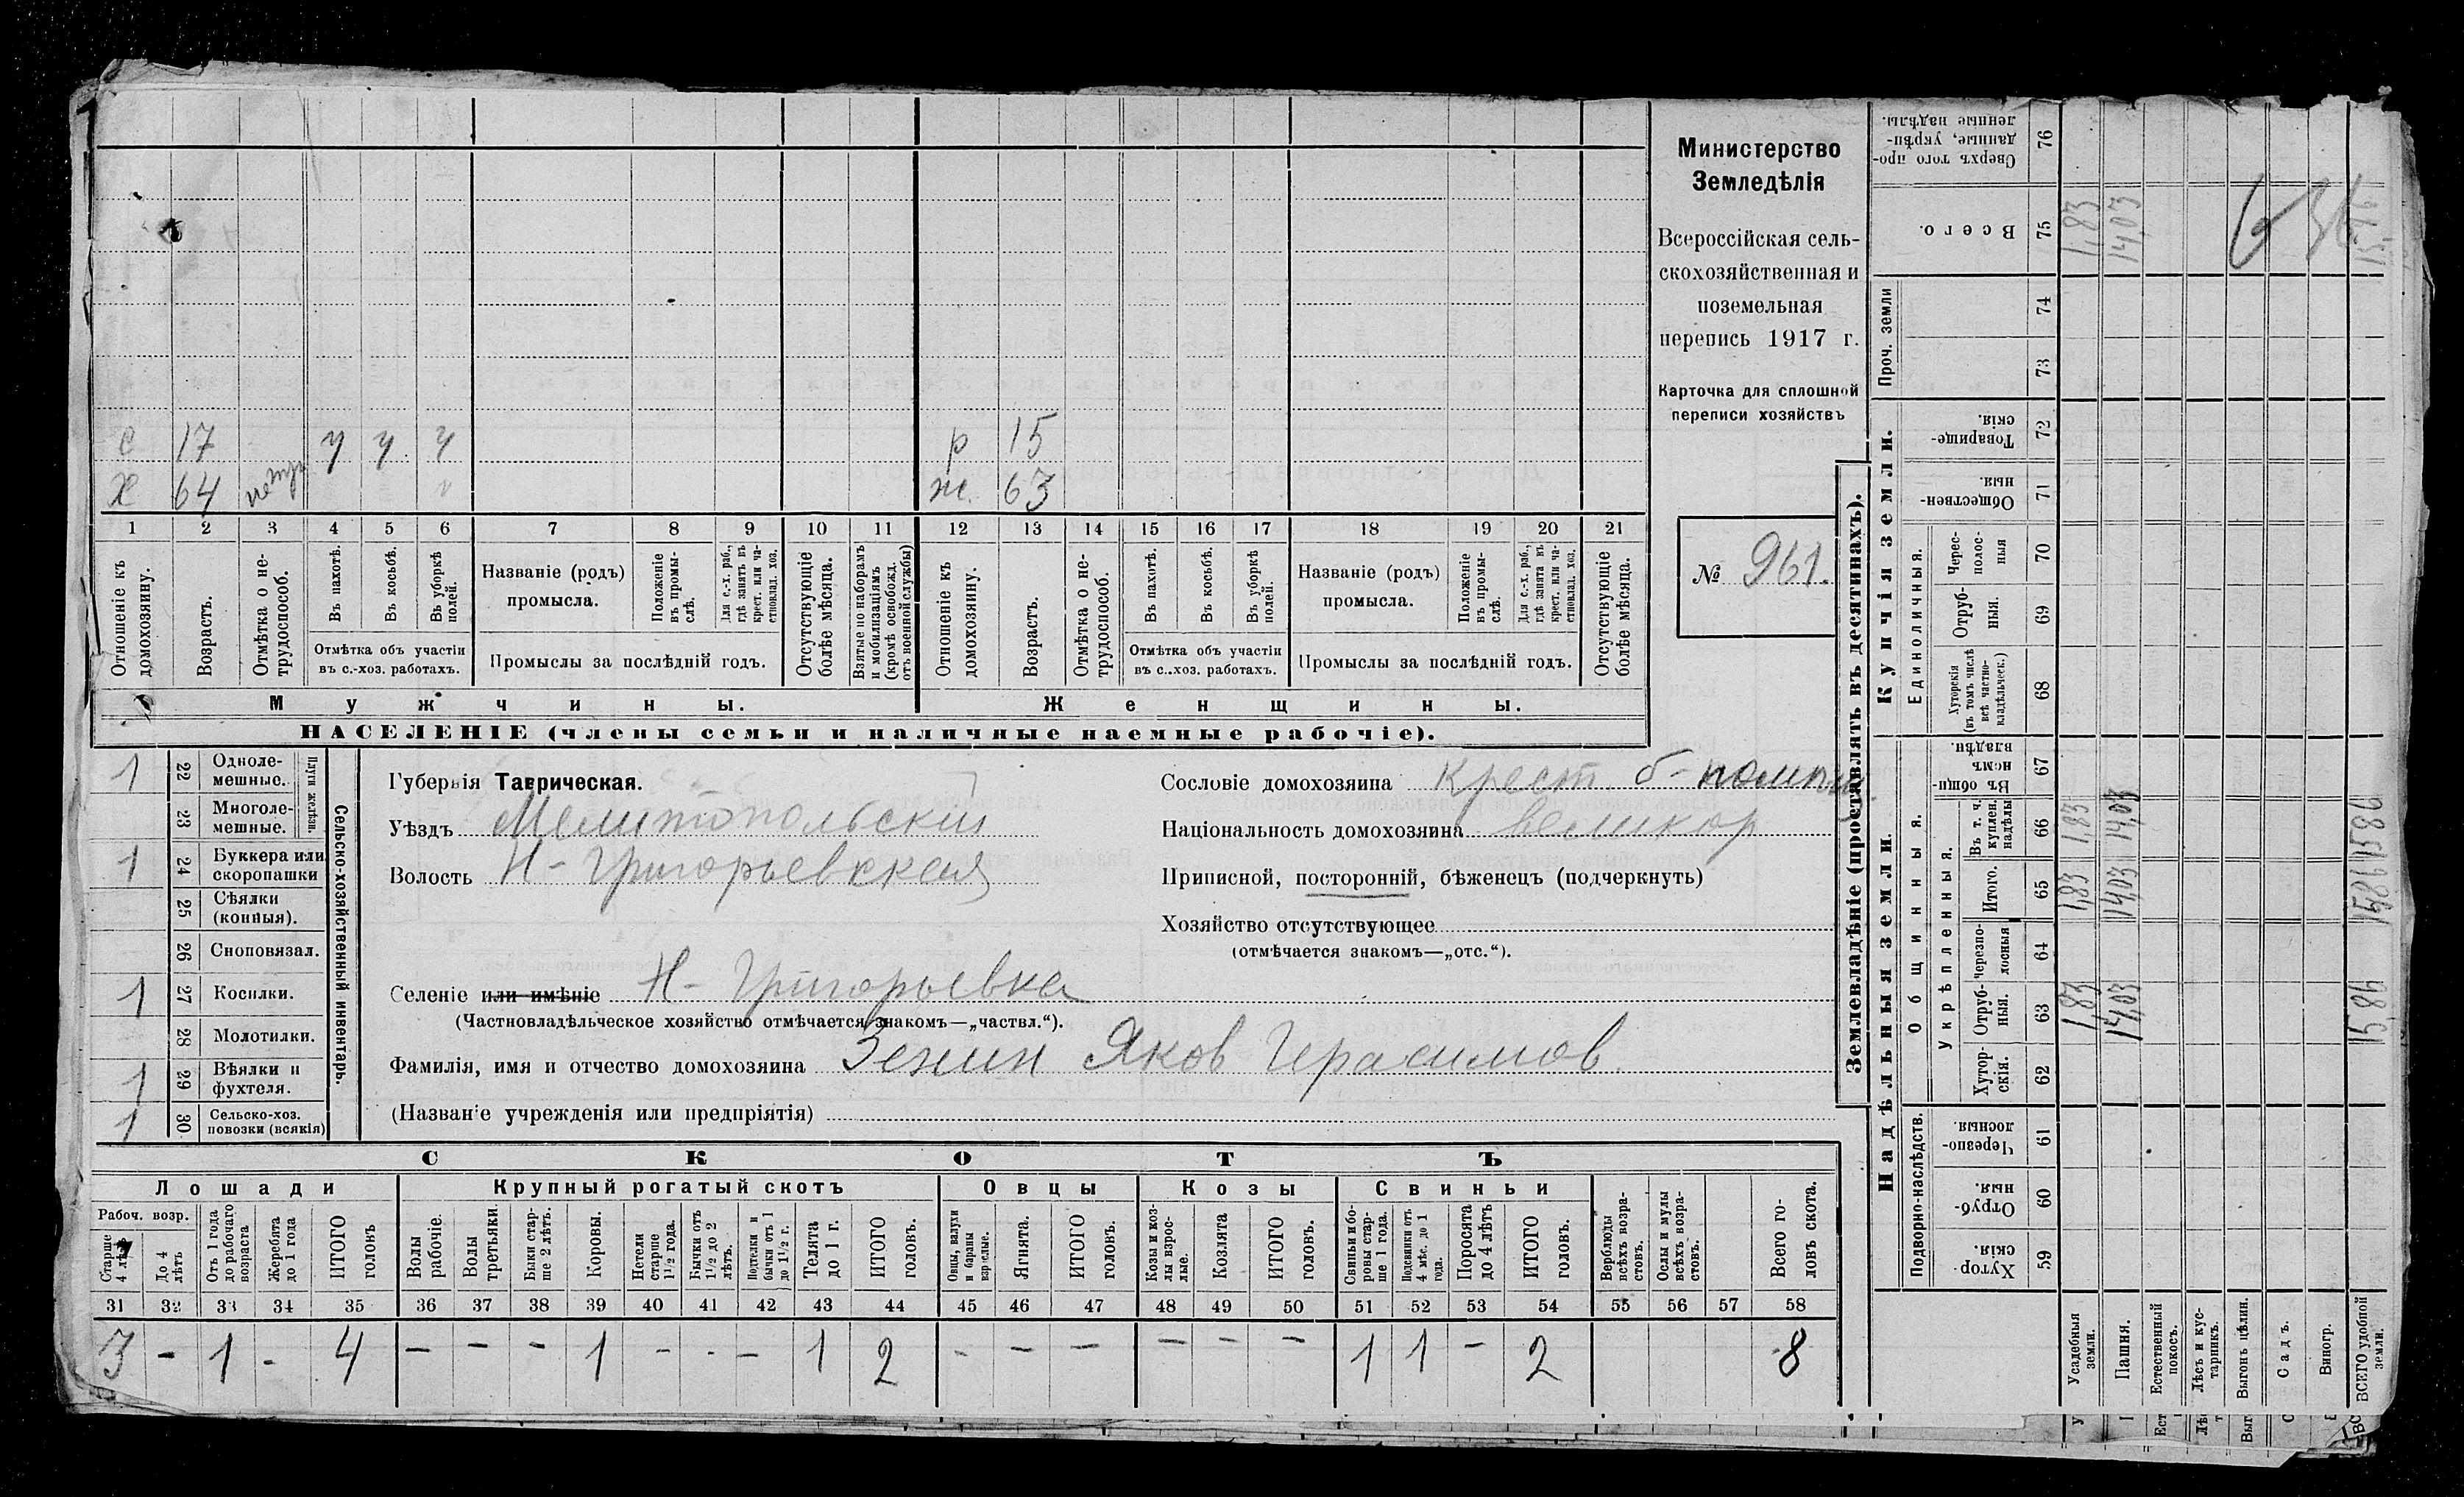 Министерство
Земледѣлія
Всероссійская сель-
скохозяйственная и
поземельная
перепись 1917 г.
Карточка для сплошной
переписи хозяйствъ
№ 961.
с 17 у у у р 15
Х 64 нетр ж. 63
1 2 3 4 5 6 7 8 9 10 11 12 13 14 15 16 17 18 19 20 21
Отношеніе къ домохозяину.
Возрастъ.
Отмѣтка о не-трудоспособ.
Въ пахотѣ.
Въ косьбѣ.
Въ уборкѣ полей.
Отмѣтка объ участіи
въ с.-хоз. работахъ.
Названіе (родъ)
промысла.
Положеніе въ промы-слѣ.
Для с.-х. раб., гдѣ занятъ въ крест. или ча-стновлад. хоз.
Промыслы за послѣдній годъ.
Отсутствующіе болѣе мѣсяца.
Взятые по наборамъ и мобилизаціямъ (кромѣ освобожд. отъ военной службы)
Отношеніе къ домохозяину.
Возрастъ.
Отмѣтка о не-трудоспособ.
Въ пахотѣ.
Въ косьбѣ.
Въ уборкѣ полей.
Отмѣтка объ участіи
въ с..хоз. работахъ.
Названіе (родъ)
промысла.
Положеніе въ промы-слѣ.
Для с.-х. раб., гдѣ занята въ крест. или ча-стновлад. хоз.
Промыслы за послѣдній годъ.
Отсутствующіе болѣе мѣсяца.
Мужчины. Женщины.
НАСЕЛЕНІЕ (члены семьи и наличные наемные рабочіе).
1 22 Одноле-мешные.
23 Многоле-мешные.
Плуги желѣзн.
1 24 Буккера или скоропашки
25 Сѣялки (конныя).
26 Сноповязал.
1 27 Косилки.
28 Молотилки.
1 29 Вѣялки и фухтеля.
1 30 Сельско-хоз. повозки (всякія)
Сельско-хозяйственный инвентарь.
Губернія Таврическая.
Уѣздъ Мелитопольскій
Волость Н-Григорьевская
Сословіе домохозяина Крест. б-помѣщ.
Національность домохозяина великор
Приписной, посторонній, бѣженецъ (подчеркнуть)
Хозяйство отсутствующее
(отмѣчается знакомъ—„отс.“).
Селеніе или имѣніе Н-Григорьевка
(Частновладѣльческое хозяйство отмѣчается знакомъ—„частвл.“).
Фамилія, имя и отчество домохозяина Зенин Яков Герасимов
(Названіе учрежденія или предпріятія)
СКОТЪ
Лошади Крупный рогатый скотъ Овцы Козы Свиньи
Рабоч. возр.
Старше 4 лѣтъ
До 4 лѣтъ
Отъ 1 года до рабочаго возраста
Жеребята до 1 года
ИТОГО головъ
Волы рабочіе.
Волы третьяки.
Быки стар-ше 2 лѣтъ.
Коровы.
Нетели старше 1½ года.
Бычки отъ 1½ до 2 лѣтъ.
Подтелки и бычки отъ 1 до 1½ г.
Телята до 1 г.
ИТОГО головъ.
Овцы, валухи и бараны взрослые.
Ягнята.
ИТОГО головъ.
Козы и коз-лы взрос-лые.
Козлята
ИТОГО головъ.
Свиньи и бо-ровы стар-ше 1 года.
Подсвинки отъ 4 мѣс. до 1 года.
Поросята до 4 лѣтъ
ИТОГО головъ.
Верблюды всѣхъ возра-стовъ.
Ослы и мулы всѣхъ возра-стовъ.
Всего го-ловъ скота.
31 32 33 34 35 36 37 38 39 40 41 42 43 44 45 46 47 48 49 50 51 52 53 54 55 56 57 58
3 - 1 - 4 - - - 1 - - - 1 2 - - - - - - 1 1 - 2 8
Землевладѣніе (проставлять въ десятинахъ).
Надѣльныя земли. Купчія земли.
Подворно-наслѣдств.
Общинныя.
Укрѣпленныя.
Единоличныя.
Проч. земли
Хутор-скія. 59
Отруб-ныя. 60
Черезпо-лосныя. 61
Хутор-скія. 62
Отруб-ныя. 63
Черезпо-лосныя 64
Итого. 65
Въ т. ч. куплен. надѣлы 66
Въ общи-номъ владѣн. 67
Хуторскія (въ томъ числѣ всѣ частно-владѣльческ.) 68
Отруб-ныя. 69
Черес-полос-ныя 70
Обществен-ныя. 71
Товарище-скія. 72
73
74
Всего. 75
Сверхъ того про-данные, укрѣп-ленные надѣлы. 76
Усадебныя земли. 1,83 1,83 1,83 1,83
Пашня. 14,03 14,03 14,03 14,03
Естественный покосъ.
Лѣсъ и кус-тарникъ.
Выгонъ цѣлин.
Садъ.
Виногр.
ВСЕГО удобной земли. 15,86 15,86 15,86